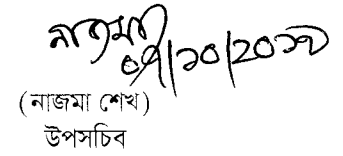 নাজমা
০৭/১০/২০১৮
(নাজমা শেখ)
উপসচিব